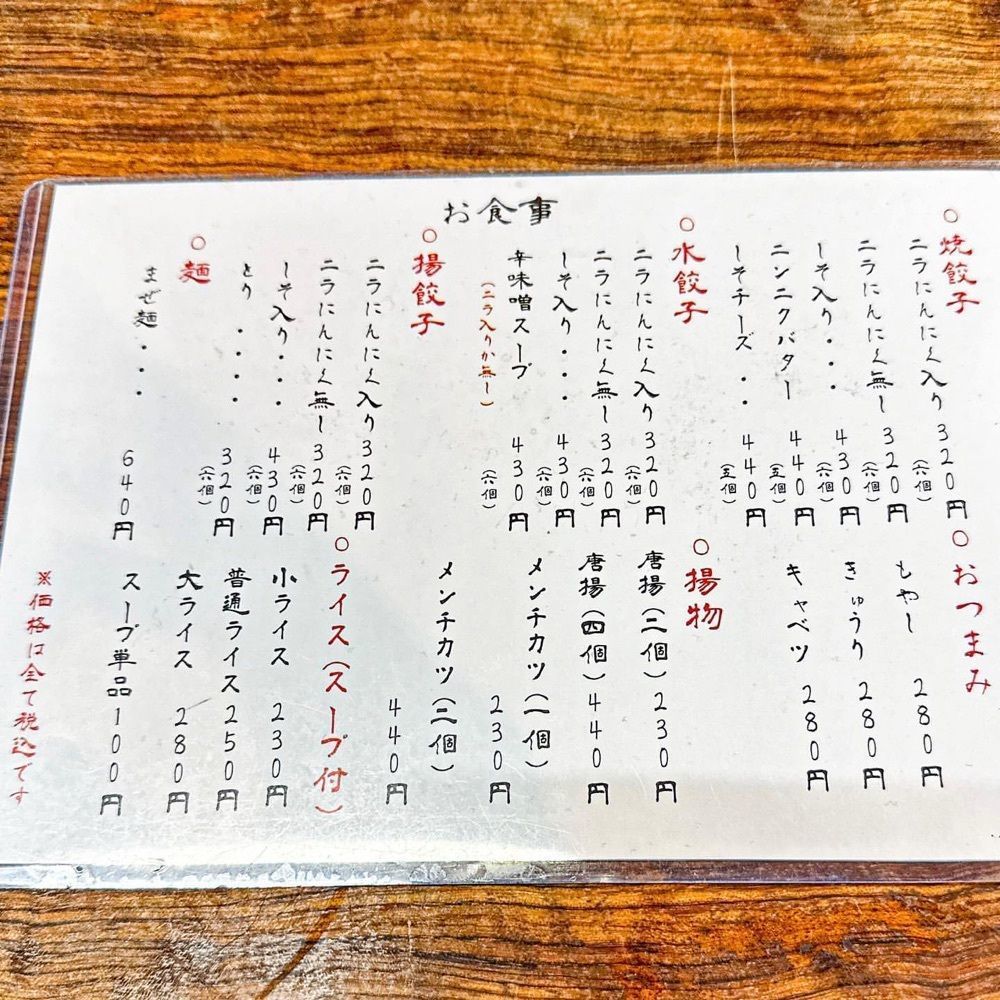 お食事
○焼餃子
ニラにんにく入り320円
(六個)
ニラにんにく無し320円
(六個)
しそ入り・・・430円
(六個)
ニンニクバター 440円
(五個)
しそチーズ・・440円
(五個)
○水餃子
ニラにんにく入り320円
(六個)
ニラにんにく無し320円
(六個)
しそ入り・・・・430円
(六個)
辛味噌スープ 430円
(ニラ入りか無し)
(六個)
○揚餃子
ニラにんにく入り320円
(六個)
ニラにんにく無し320円
(六個)
しそ入り・・・430円
(六個)
とり・・・・320円
(六個)
○麺
まぜ麺・・・640円
○おつまみ
もやし 280円
きゅうり 280円
キャベツ 280円
○揚物
唐揚(二個)230円
唐揚(四個)440円
メンチカツ(一個)
230円
メンチカツ(二個)
440円
○ライス(スープ付)
小ライス 230円
普通ライス250円
大ライス 280円
スープ単品100円
※価格は全て税込です